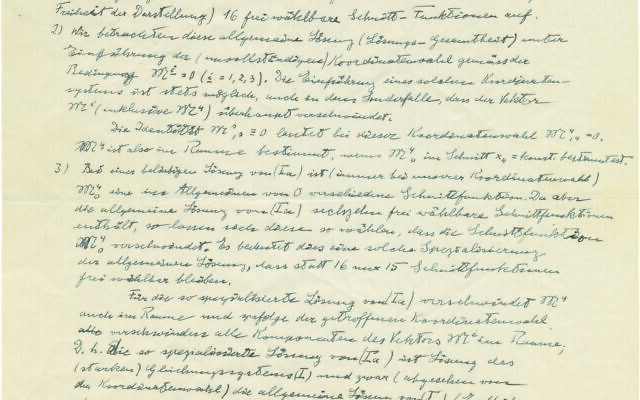 Freiheit der Darstellung) 16 frei wählbare Schnitt-Funktionen auf.
2) Wir betrachten diese allgemeine Lösung (Lösungs-Gesamtheit) unter
Einführung der (unvollständigen) Koordinatenwahl gemäss der
Bedingung 𝔐ⁱ = 0 (i = 1, 2, 3). Die Einführung eines solchen Koordinaten-
systems ist stets möglich, auch in dem Sonderfalle, dass der Vektor
𝔐ˢ (inklusive 𝔐⁴) überhaupt verschwindet.
Die Identität 𝔐ˢ,ₛ ≡ 0 lautet bei dieser Koordinatenwahl 𝔐⁴,₄ = 0.
𝔐⁴ ist also im Raume bestimmt, wenn 𝔐⁴ im Schnitt x₄ = konst. bestimmt ist.
3) Bei einer beliebigen Lösung von (Ia) ist (immer bei unserer Koordinatenwahl)
𝔐⁴ eine im Allgemeinen von 0 verschiedene Schnittfunktion. Da aber
die allgemeine Lösung von (Ia) sechzehn frei wählbare Schnittfunktionen
enthält, so lassen sich diese so wählen, dass die Schnittfunktion
𝔐⁴ verschwindet. Es bedeutet dies eine solche Spezialisierung
der allgemeinen Lösung, dass statt 16 nur 15 Schnittfunktionen
frei wählbar bleiben.
Für die so spezialisierte Lösung von (Ia) verschwindet 𝔐⁴
auch im Raume und zufolge der getroffenen Koordinatenwahl
verschwinden alle Komponenten des Vektors 𝔐ˢ im Raume,
D. h. die so spezialisierte Lösung von (Ia) ist Lösung des
(starken) Gleichungssystems (I) und zwar (abgesehen von
der Koordinatenwahl) die allgemeine Lösung von